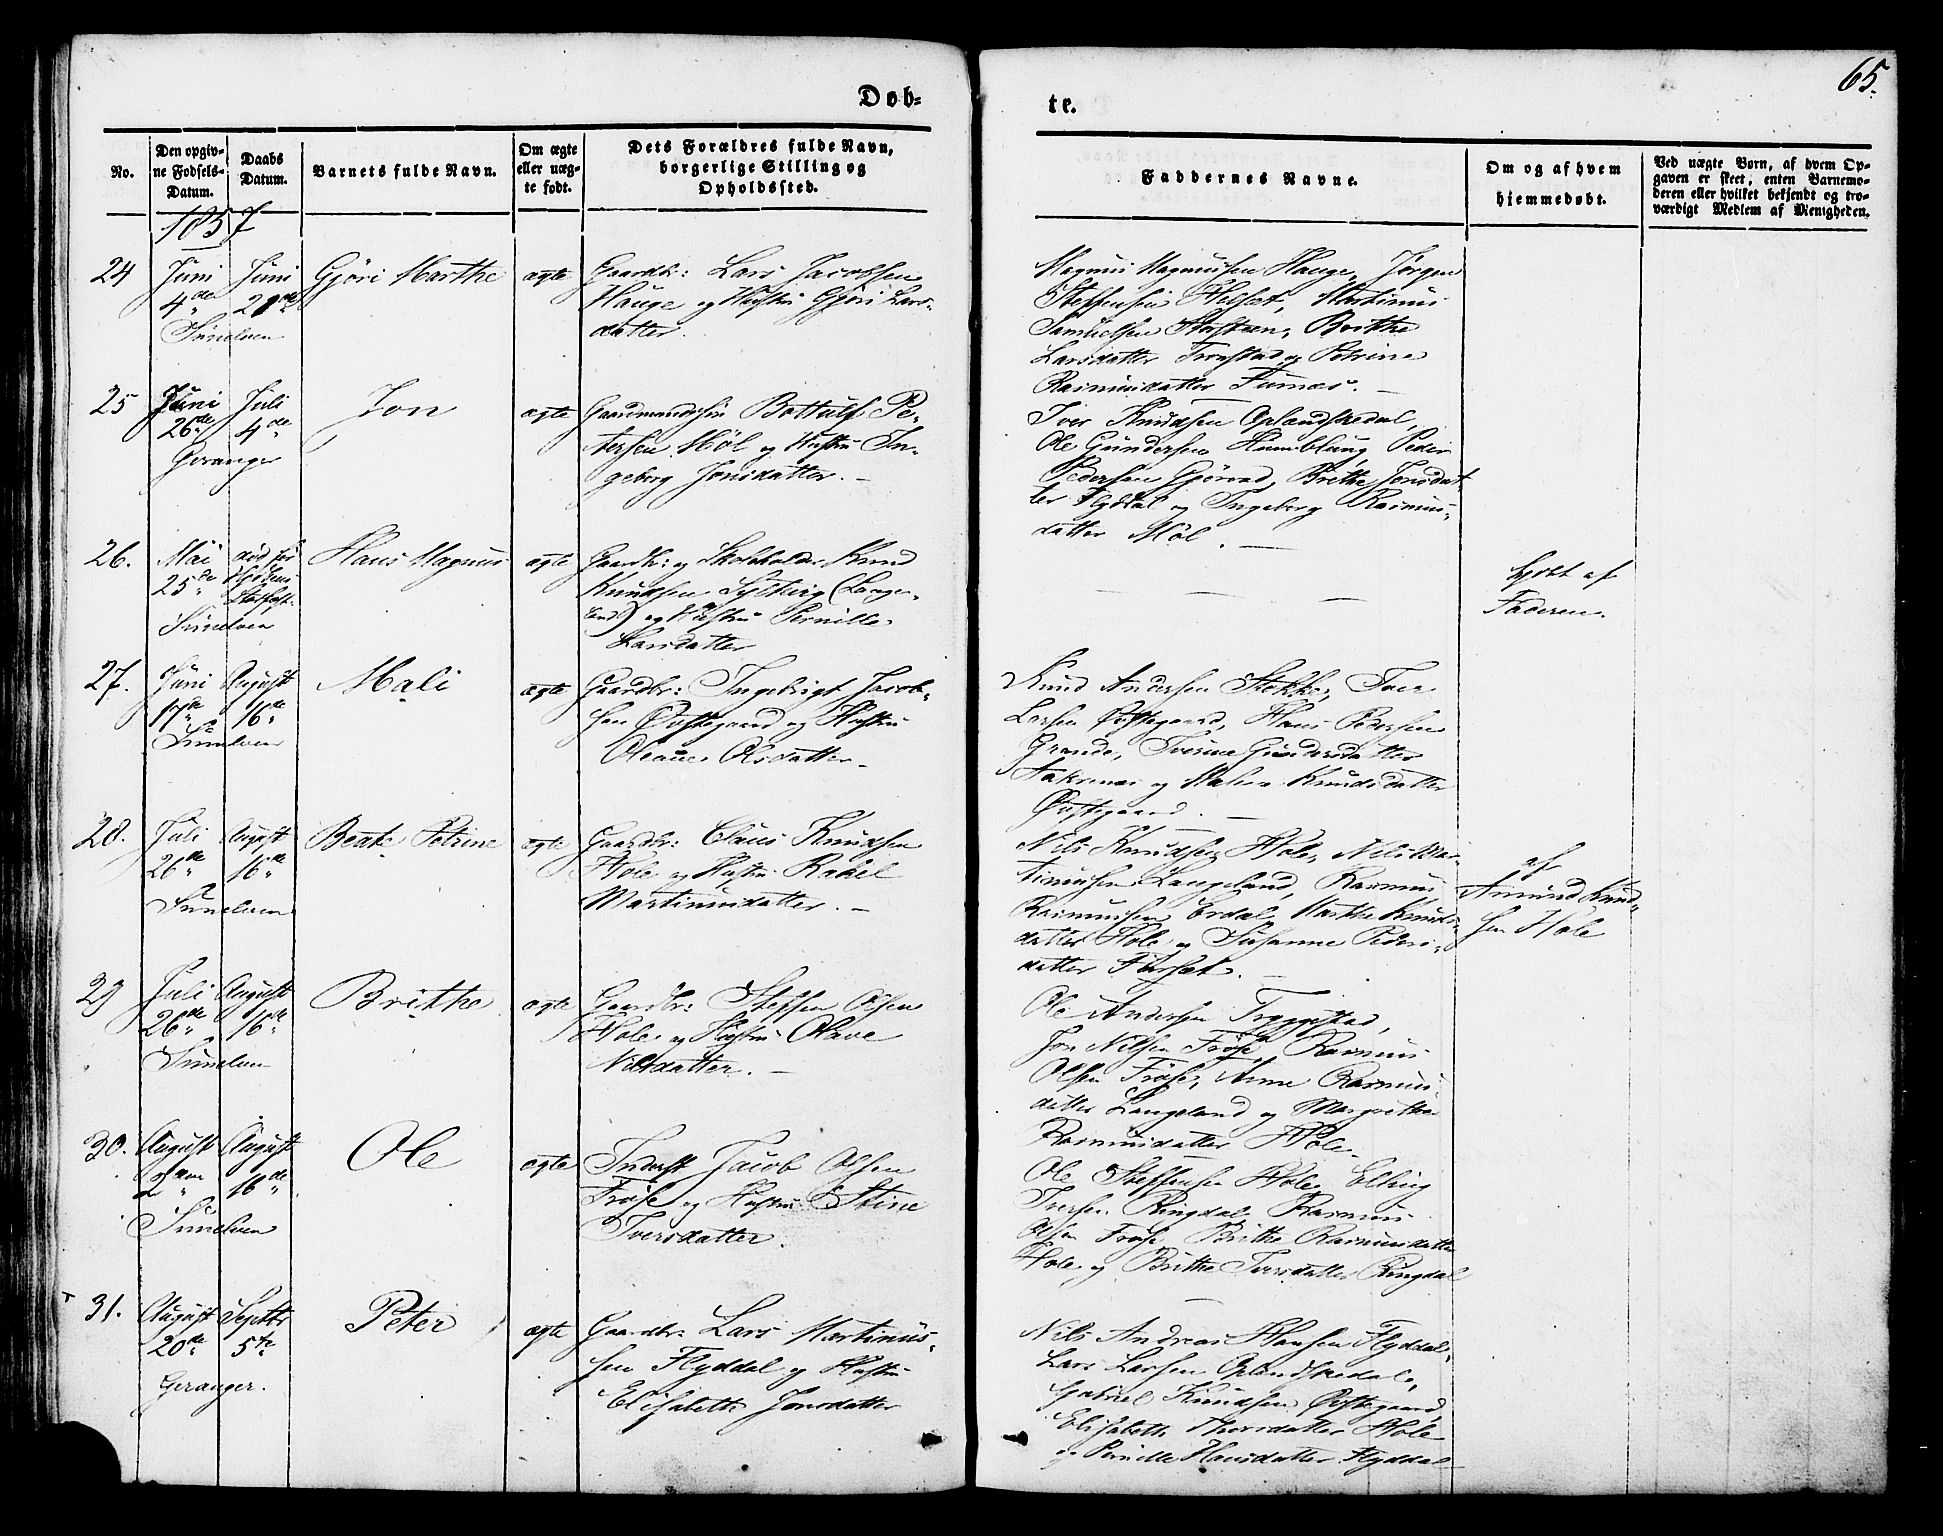 65.
Døb=
te.
No.
Den opgiv-
ne Fødsels-
Datum.
Daabs
Datum.
Barnets fulde Navn.
Om ægte
eller uæg-
te født.
Dets Forældres fulde Navn,
borgerlige Stilling og
Opholdssted.
Faddernes Navne.
Om og af hvem
hjemmedøbt.
Ved uægte Børn, af hvem Op-
gaven er skeet, enten Barnemo-
deren eller hvilket bekjendt og tro-
værdigt Medlem af Menigheden.
1857
24
Juni
4de
Sunelven
Juni
Gjøri Marthe
ægte
Gaardbr: Lars Jacobsen
Hauge og Hustru Gjøri Lars-
datter.
Magnus Magnussen Hauge, Jørgen
Steffensen Helset, Martinus
Samuelsen Brithe
Larsdatter Tronstad og Petrine
Rasmusdatter Furnæs. —
25
Juni
26de
Geranger
Juli
4de
Jon
ægte
Gaardmandssøn Bottulf Pe-
tersen Møl og Hustru In-
geborg Jonsdatter. —
Iver Knudsen Oplændskedal,
Ole Gundersen Humblung, Peder
Pedersen Gjørvad, Brithe Jonsdat-
ter Flyddal og Ingeborg Rasmus-
datter Møl. —
26.
Mai
25de
Sunelven
død før
Hans Magnus
ægte
Gaardbr: og Skoleholder Knud
Knudsen (Lange-
land) og Hustru Pernille
Larsdatter
— — —
hjdbt af
Faderen.
27.
Juni
17de
Sunelven
August
16de
Mali
ægte
Gaardbr: Ingebrigt Jacob-
sen Øvstegaard og Hustru
Oleane Olsdatter. —
Knud Andersen Stokke, Iver
Larsen Øvstegaard, Hans Pedersen
Grande, Iverine Gundersdatter
Aakernæs og Malene Knudsdatter
Øvstegaard. —
28.
Juli
26de
Sunelven
August
16de
Beate Petrine
ægte
Gaardbr: Claus Knudsen
Hole og Hustru Rakel
Martinusdatter. —
Nils Knudsen Hole, Nils Mar-
tinussen Langeland, Rasmus
Rasmussen Erdal, Marthe Knuds-
datter Hole og Susanne Peders-
datter —
af
Amund Knud-
sen Hole
29
Juli
26de
Sunelven
August
16de
Brithe
ægte
Gaardbr: Steffen Olsen
Hole og Hustru Olave
Nilsdatter. —
Ole Andersen Tryggestad,
Jon Nilsen Frøse, Rasmus
Olsen Frøse, Anne Rasmus-
datter Langeland og Margrethe
Rasmusdatter Hole.
30.
August
2den
Sunelven
August
16de
Ole
ægte
Inderst Jacob Olsen
Frøse og Hustru Stine
Iversdatter.
Ole Steffensen Hole, Elling
Iversen Ringdal, Rasmus
Olsen Frøse, Brithe Rasmusdatter
Hole og Brithe Iversdatter Ringdal
—
31.
August
20de
Geranger.
Septbr
5te
Peter
ægte
Gaardbr: Lars Martinus-
sen Flyddal og Hustru
Elisabeth Jonsdatter
Nils Andreas Hansen Flyddal,
Lars Larsen Oplændskedal,
Gabriel Knudsen Øvstegaard,
Elisabeth Thorsdatter Hole
og Pernille Hansdatter Flyddal